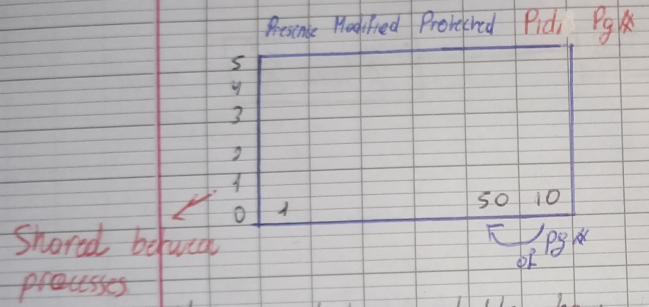 Presence Modified Protected Pid, Pg#
5
4
3
2
1
0 1 50 10
Shared between
processes
pg#
of